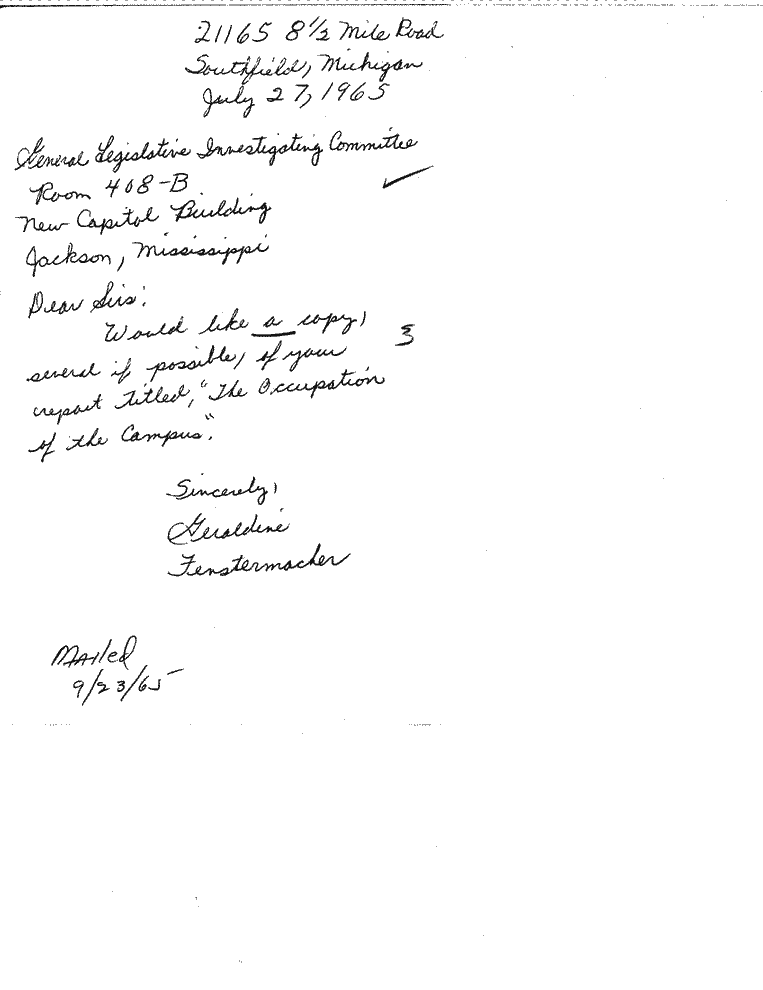 21165 8½ Mile Road
Southfield, Michigan
July 27, 1965
General Legislative Investigating Committee
Room 408-B
New Capitol Building
Jackson, Mississippi
Dear Sirs:
Would like a copy,
several if possible, of your
3
report titled, "The Occupation
of the Campus."
Sincerely,
Geraldine
Fenstermacher
Mailed
9/23/65